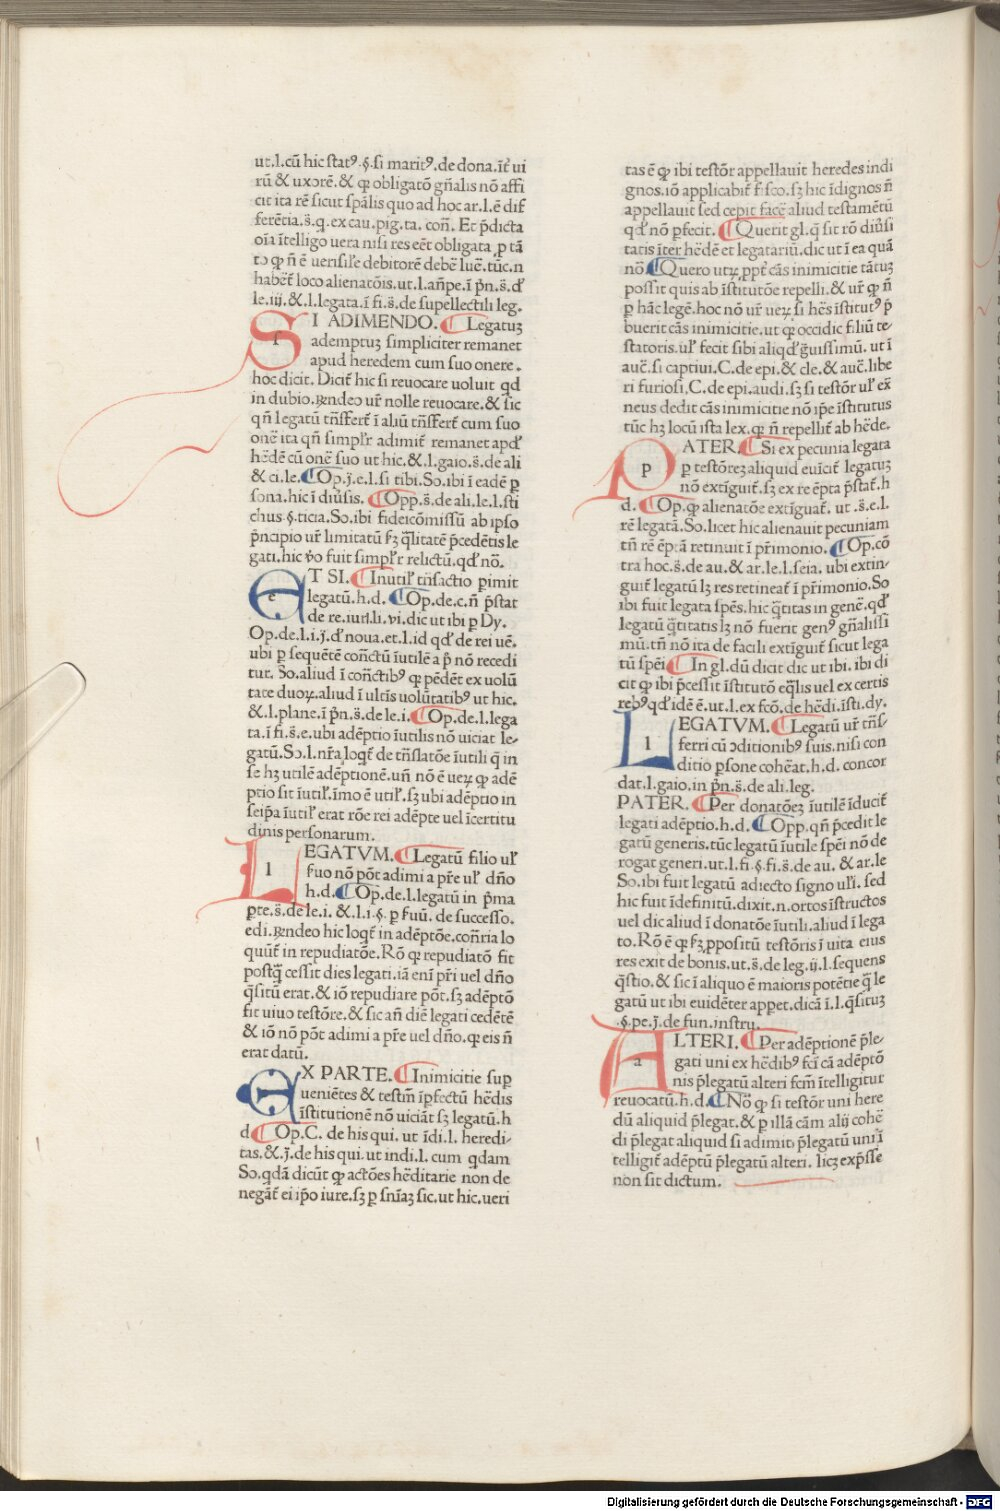 ut.l.cū hic statꝰ.§.si maritꝰ.de dona.īt ui
rū & uxorē.& ꝙ obligatō gñalis nō affi
cit ita rē sicut spālis quo ad hoc ar.l.ē dif
ferētia.s̄.q.ex cau.pig.ta. coñ. Et p̄dicta
oīa ītelligo uera nisi res eēt obligata ꝓ tā
to ꝙ ñ ē uerisile debitorē debē luē.tūc.n
habēt loco alienatōis.ut.l.añpe.ī p̄n.s̄.d̄
le.iij.& l.legata.ī fi.s̄.de supellectili leg.
SI ADIMENDO. Legatuꝫ
ademptuꝫ simpliciter remanet
apud heredem cum suo onere.
hoc dicit. Dicit hic si reuocare uoluit qd
in dubio.rñdeo ur̄ nolle reuocare.& sic
qñ legatū tñsfert ī aliū tñsfert cum suo
onē ita qñ simplr̄ adimit remanet apd̄
hēdē cū onē suo ut hic.& l.gaio.s̄.de ali
& ci.le. Op.j̄.e.l.si tibi.So.ibi ī eadē ꝑ
sona.hic ī diūsis. Opp.s̄.de ali.le.l.sti
chus.§.ticia.So.ibi fideicōmissū ab ipso
p̄ncipio ur̄ limitatū ẜꝫ q̄litatē p̄cedētis le
gati.hic v̄o fuit simplr̄ relictū.qd̄ nō.
ET SI. Inutil̄ tñsactio ꝑimit
legatū.h.d. Op.de.c.ñ p̄stat
de re.iud.li.vi.dic ut ibi ꝑ Dy.
Op.de.l.i.j̄.d̄ noua.et.l.id qd̄ de rei uē.
ubi ꝑ sequētē coñctū īutilē a p̄ nō recedi
tur. So.aliud ī coñctibꝰ ꝙ pēdēt ex uolū
tate duoꝝ.aliud ī ultīs uolūtatibꝰ ut hic.
& .l.plane.ī p̄n.s̄.de le.i. Op.de.l.lega
ta.ī fi.s̄.e.ubi adēptio īutilis nō uiciat le-
gatū.So.l.nr̄a loqt de tñslatōe īutili q̄ in
se hꝫ utilē adēptionē.uñ nō ē ueꝝ ꝙ adē
ptio sit īutil̄.īmo ē util̄.ẜꝫ ubi adēptio in
seip̄a īutil̄ erat rōe rei adēpte uel īcertitu
dinis personarum.
LEGATVM. Legatū filio ul̄
suo nō pōt adimi a pr̄e ul̄ dño
h.d. Op.de.l.legatū in p̄ma
ꝑte.s̄.de le.i. & .l.i.§. ꝑ fuū. de successo.
edi.rñdeo hic loqt in adēptōe.coñria lo
quūt in repudiatōe. Rō ꝙ repudiatō fit
postq̄ cessit dies legati.iā enī pr̄i uel dño
q̄sitū erat.& iō repudiare pōt.ẜꝫ adēptō
fit uiuo testōre.& sic añ diē legati cedētē
& iō nō pōt adimi a pr̄e uel dño.ꝙ eis ñ
erat datū.
EX PARTE. Inimicitie sup
ueniētes & testm̄ īꝑfectū hēdis
īstitutionē nō uiciāt ẜꝫ legatū.h
d Op.C. de his qui. ut īdi.l. heredi-
tas.&.j̄.de his qui.ut indi.l. cum qdam
So.qdā dicūt ꝙ actōes hēditarie non de
negāt ei ip̄o iure.ẜꝫ ꝑ sñīaꝫ sic.ut hic.ueri
tas ē ꝙ ibi testōr appellauit heredes indi
gnos.iō applicabit fisco.ẜꝫ hic īdignos ñ
appellauit sed cepit facē aliud testamētū
qd̄ nō ꝑfecit. Querit gl.q̄ sit rō diūsi
tatis īter hēdē et legatariū.dic ut ī ea quā
nō Quero utꝝ ꝓpt cās inimicitie tātuꝫ
possit quis ab īstitutōe repelli.& ur̄ ꝙ ñ
ꝑ hāc legē.hoc nō ur̄ ueꝝ si hēs īstitutꝰ p̄
buerit cās inimicitie.ut ꝙ occidic filiū te-
statoris.ul̄ fecit sibi aliqd̄ g̃uissimū.ut ī
auc̄.si captiui.C.de epi.& cle.& auc̄.libe
ri furiosi.C.de epi.audi.ẜꝫ si testōr ul̄ ex̄
neus dedit cās inimicitie nō ip̄e īstitutus
tūc hꝫ locū ista lex.ꝙ ñ repellit ab hēde.
PATER. Si ex pecunia legata
ꝑ testōreꝫ aliquid euīcit legatuꝫ
nō extīguit.ẜꝫ ex re ēpta p̄stat.h
d. Op.ꝙ alienatōe extīguat. ut .s̄.e.l.
rē legatā.So.licet hic alienauit pecuniam
tñ rē ēptā retinuit ī pr̄imonio. Op.cō
tra hoc.s̄.de au.& ar.le.l.seia. ubi extin-
guit legatū lꝫ res retineat ī pr̄imonio.So
ibi fuit legata spēs.hic q̄titas in genē.qd̄
legatū q̄titatis lꝫ nō fuerit genꝰ gñalissi
mū.tñ nō ita de facili extīguit sicut lega
tū spēi In gl.dū dicit dic ut ibi.ibi di
cit ꝙ ibi p̄cessit īstitutō eq̄lis uel ex certis
rebꝰqd̄ idē ē.ut.l.ex fcō.de hēdi.īsti.dy.
LEGATVM. Legatū ur̄ tñs-
ferri cū ↄditionibꝰ suis.nisi con
ditio ꝑsone cohēat.h.d. concor
dat.l.gaio.in p̄n.s̄.de ali.leg.
PATER. Per donatōeꝫ īutilē īducit
legati adēptio.h.d. Opp.qñ p̄cedit le
gatū generis.tūc legatū īutile spēi nō de
rogat generi.ut.l.fi.§.fi.s̄.de au. & ar.le
So.ibi fuit legatū adiecto signo ul̄i. sed
hic fuit īdefinitū.dixit.n.ortos īstructos
uel dic aliud ī donatōe īutili.aliud ī lega
to.Rō ē ꝙ ẜꝫ ꝓpositū testōris ī uita eius
res exit de bonis.ut.s̄.de leg.ij.l.sequens
q̄stio.& sic ī aliquo ē maioris potētie q̄ le
gatū ut ibi euidēter appet.dicā ī.l.q̄situꝫ
.§.pe.j̄.de fun.instru.
ALTERI. Per adēptionē p̄le-
gati uni ex hēdibꝰ fcī cā adēptō
nis p̄legatū alteri fcm̄ ītelligitur
reuocatū.h.d. Nō ꝙ si testōr uni here
dū aliquid p̄legat.& ꝑ illā cām alij cohē
di p̄legat aliquid si adimit p̄legatū uni ī
telligit adēptū p̄legatū alteri. licꝫ exp̄sse
non sit dictum.
Digitalisierung gefördert durch die Deutsche Forschungsgemeinschaft - DFG